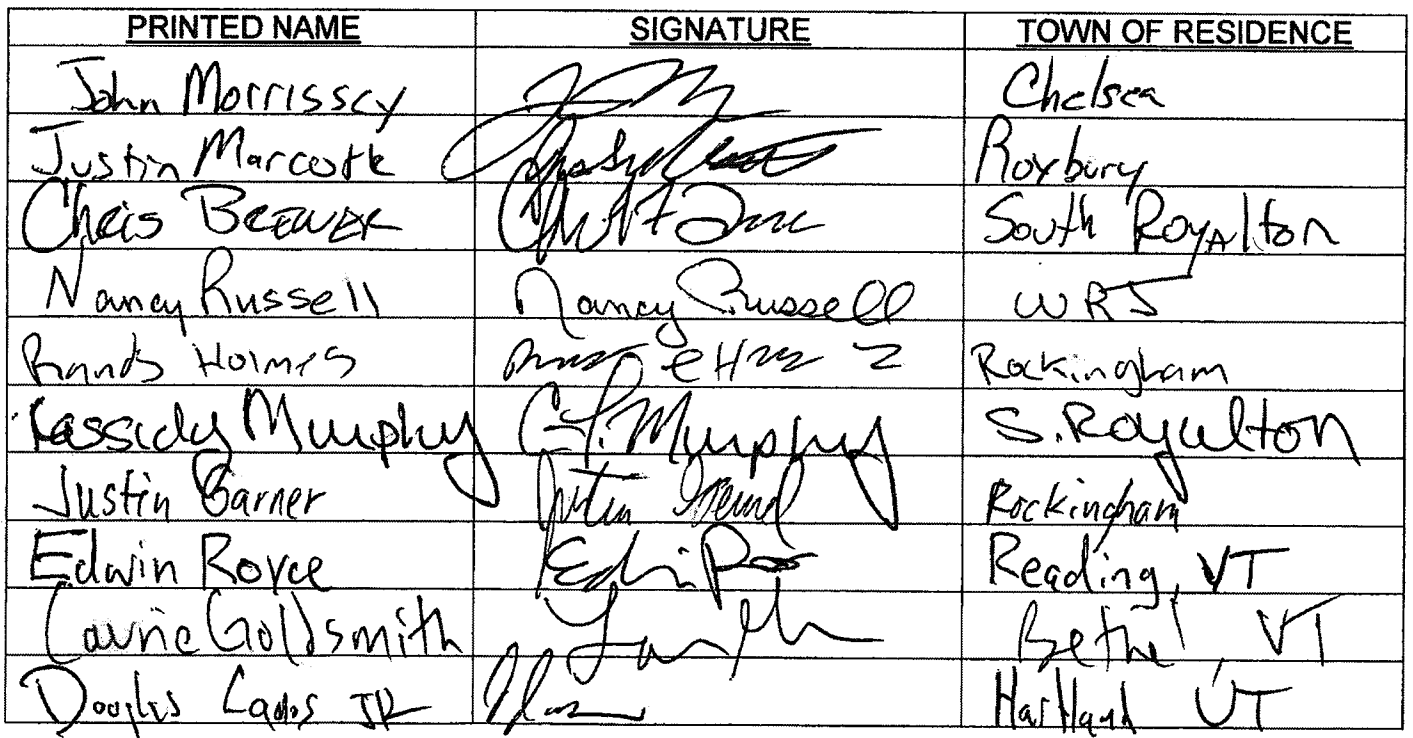 PRINTED NAME SIGNATURE TOWN OF RESIDENCE
John Morrissey Chelsea
Justin Marcotte Roxbury
Chris Brewer South Royalton
Nancy Russell Nancy Russell WRJ
Randy Holmes Rockingham
Kassidy Murphy C.F. Murphy S. Royalton
Justin Garner Justin Rockingham
Edwin Royce Reading, VT
Laurie Goldsmith Bethel, VT
Douglas JR Hartland VT